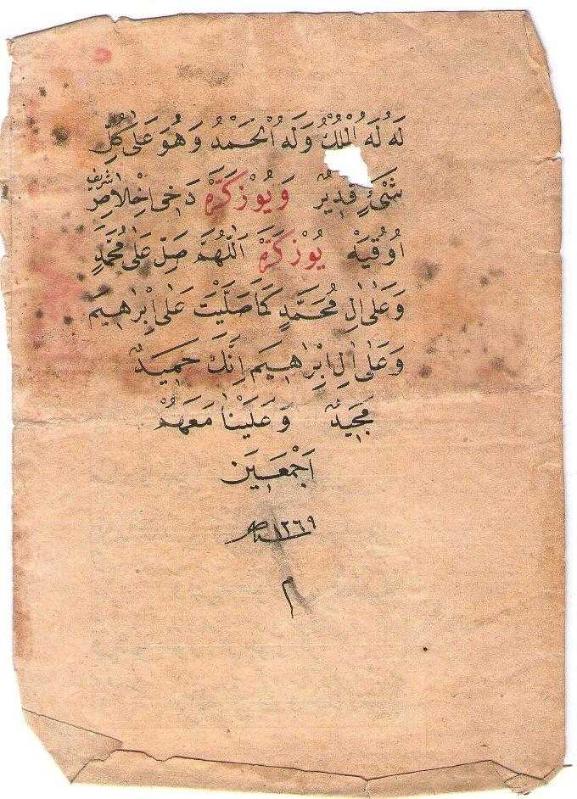 لَهُ لَهُ الْمُلْكُ وَلَهُ الْحَمْدُ وَهُوَ عَلٰى كُلِّ
شَىْءٍ قَدِيرٌ وَيُوزْ كَرَّهْ دَخِى اِخْلَاصِ شريف
اُوقُيَهْ يُوزْ كَرَّهْ اَللّٰهُمَّ صَلِّ عَلٰى مُحَمَّدٍ
وَعَلٰى اٰلِ مُحَمَّدٍ كَمَا صَلَّيْتَ عَلٰى اِبْرٰهِيمَ
وَعَلٰى اٰلِ اِبْرٰهِيمَ اِنَّكَ حَمِيدٌ
مَجِيدٌ وَعَلَيْنَا مَعَهُمْ
اَجْمَعِينَ
١٢٦٩
م